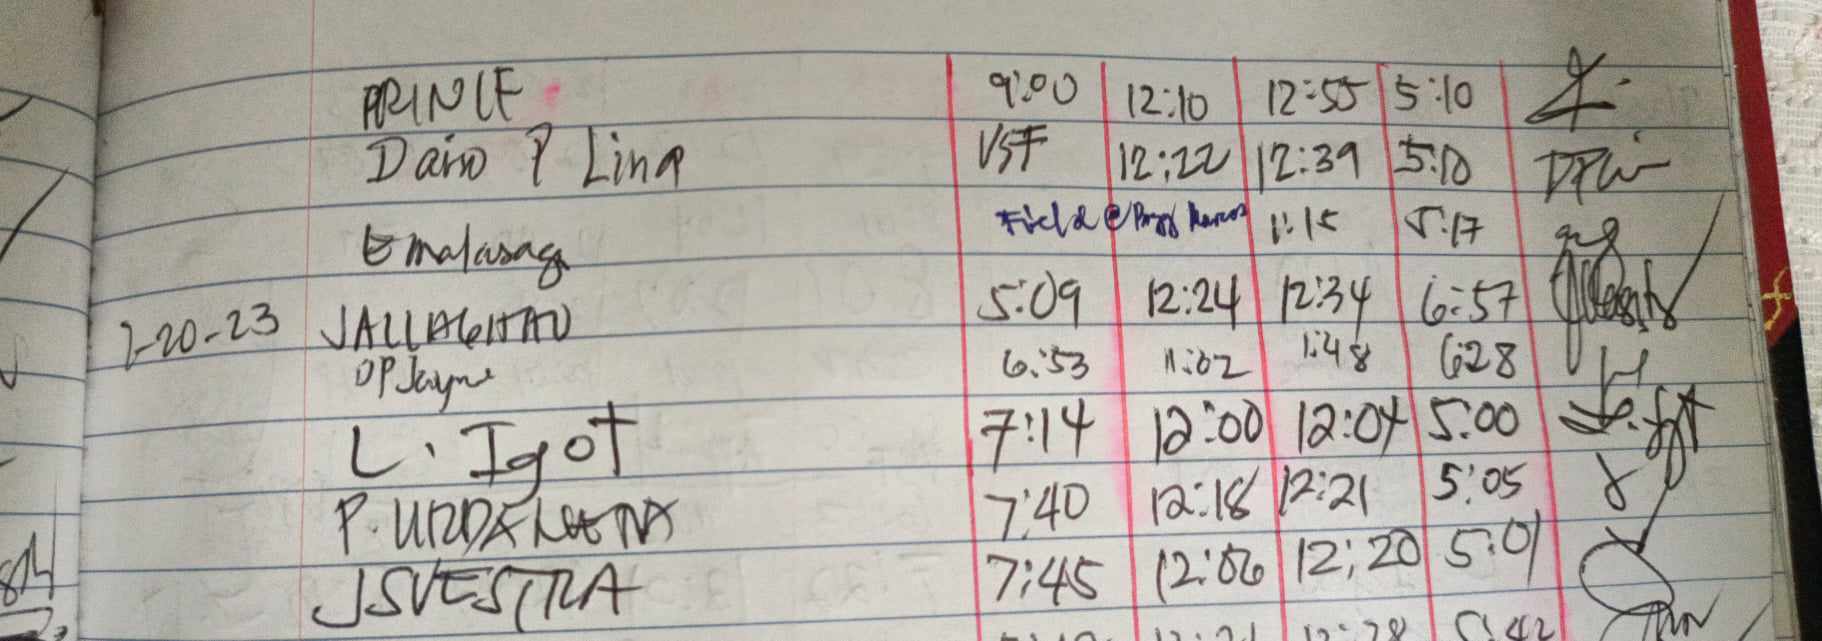 PRINCE 9:00 12:10 12:55 5:10
Dario P Lina VSF 12:22 12:39 5:10
Emalasag Field @ Brgy Marcos 1:15 5:17
7-20-23 JALLAGHAD 5:09 12:24 12:34 6:57
OP Jayne 6:53 11:02 1:48 6:28
L. Igot 7:14 12:00 12:04 5:00
P. URDANETA 7:40 12:18 12:21 5:05
JSVESTRA 7:45 12:06 12:20 5:01
5:42